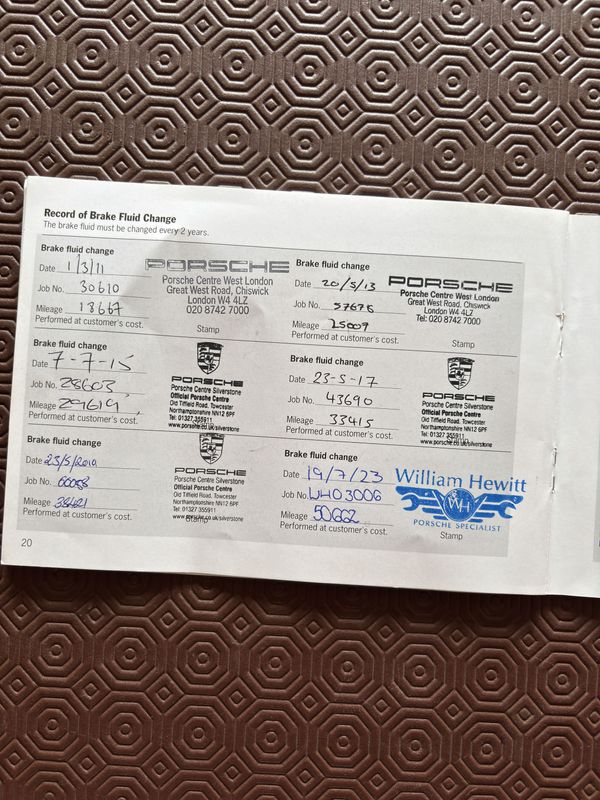 Record of Brake Fluid Change
The brake fluid must be changed every 2 years.
Brake fluid change
Date 1/3/11
Job No. 30610
Mileage 18667
Performed at customer's cost.
PORSCHE
Porsche Centre West London
Great West Road, Chiswick
London W4 4LZ
020 8742 7000
Stamp
Brake fluid change
Date 20/5/13
Job No. 57676
Mileage 25009
Performed at customer's cost.
PORSCHE
Porsche Centre West London
Great West Road, Chiswick
London W4 4LZ
Tel: 020 8742 7000
Stamp
Brake fluid change
Date 7-7-15
Job No. 28603
Mileage 29619
Performed at customer's cost.
PORSCHE
Porsche Centre Silverstone
Official Porsche Centre
Old Tiffield Road, Towcester
Northamptonshire NN12 6PF
Tel. 01327 355911
www.porsche.co.uk/silverstone
Brake fluid change
Date 23-5-17
Job No. 43690
Mileage 33415
Performed at customer's cost.
PORSCHE
Porsche Centre Silverstone
Official Porsche Centre
Old Tiffield Road, Towcester
Northamptonshire NN12 6PF
Tel: 01327 355911
www.porsche.co.uk/silverstone
Brake fluid change
Date 23/5/2019
Job No. 60088
Mileage
Performed at customer's cost.
PORSCHE
Porsche Centre Silverstone
Official Porsche Centre
Old Tiffield Road, Towcester
Northamptonshire NN12 6PF
Tel: 01327 355911
www.porsche.co.uk/silverstone
Stamp
Brake fluid change
Date 19/7/23
Job No. WH03006
Mileage 50662
Performed at customer's cost.
William Hewitt
WH
PORSCHE SPECIALIST
Stamp
20